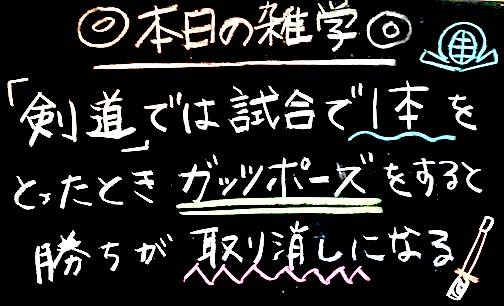 ◎本日の雑学◎
「剣道」では試合で1本を
とったときガッツポーズをすると
勝ちが取り消しになる